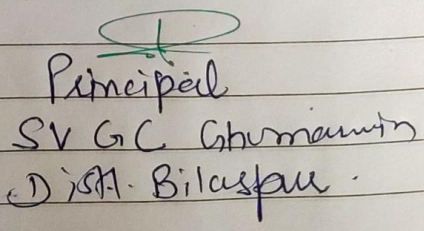 Principal
SV GC Ghumarwin
Distt. Bilaspur.